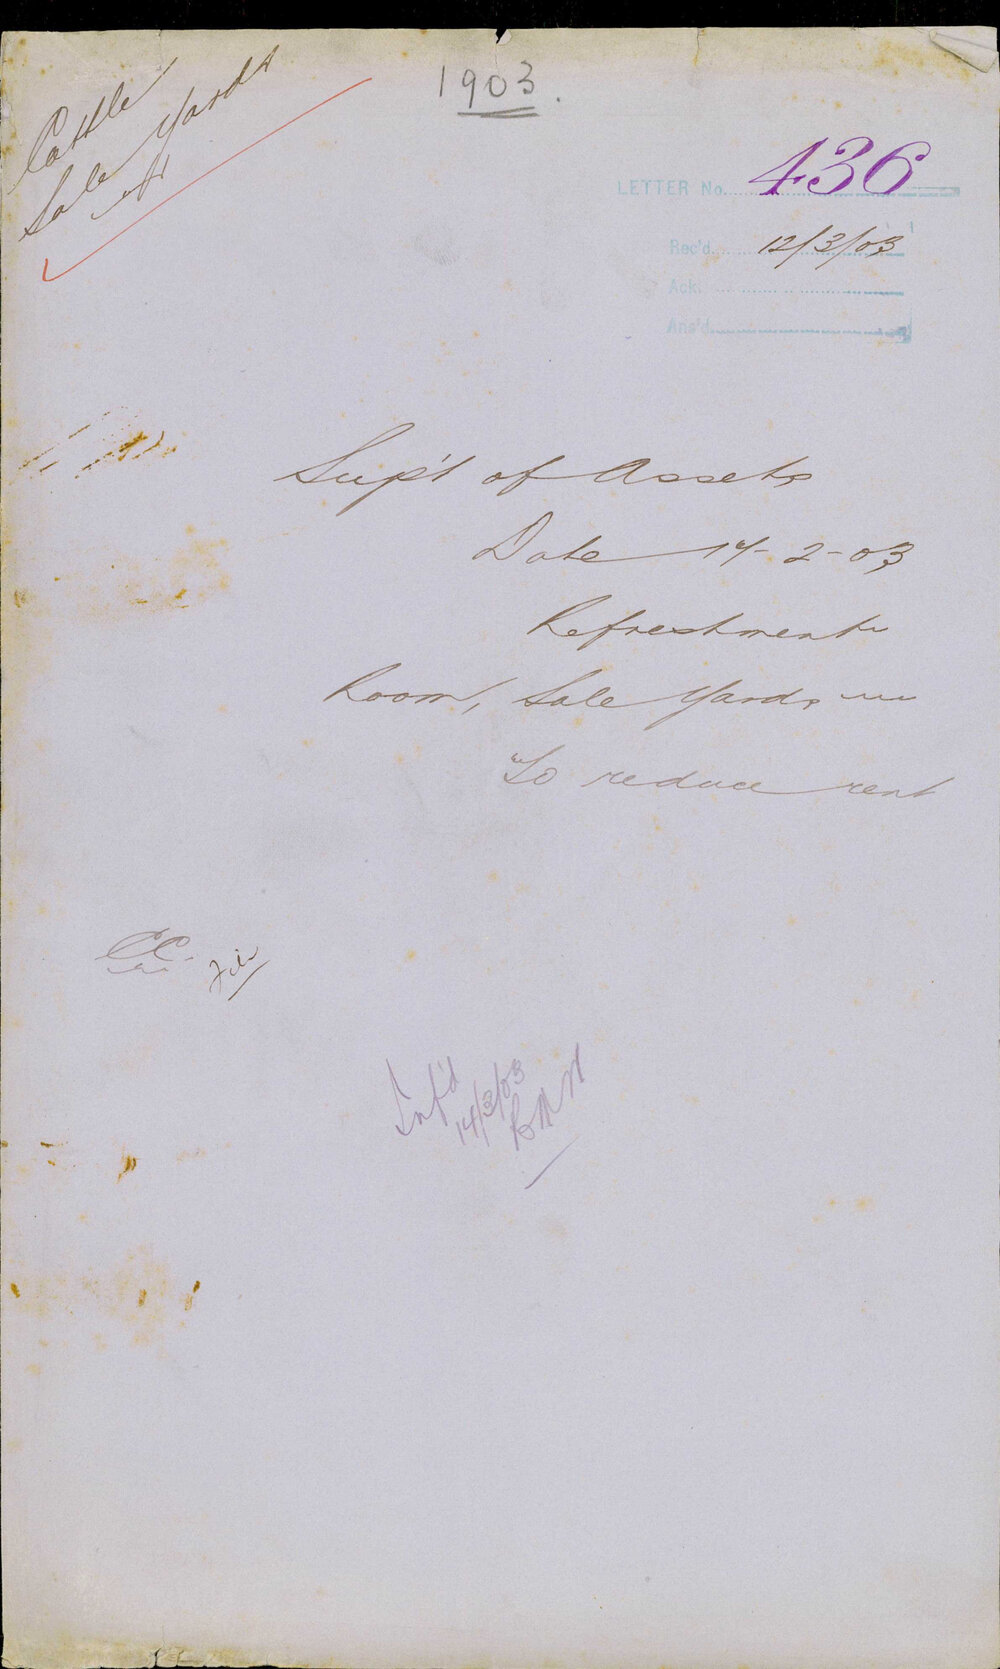 1903.
Cattle
Sale Yards
LETTER No. 436
Rec'd. 12/3/03
Ack.
Ans'd.
Sup't of Assets
Date 14-2-03
Refreshment
Room, Sale Yards
To reduce rent
File
Inf'd
14/3/03